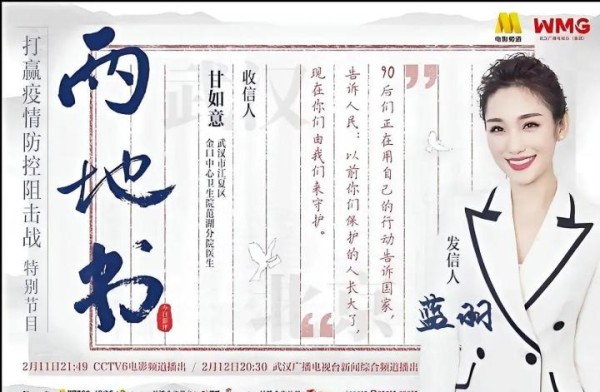 电影频道
WMG
打赢疫情防控阻击战 特别节目
两地书
今日影评
收信人
甘如意
武汉市江夏区
金口中心卫生院范湖分院医生
武汉
北京
90后们正在用自己的行动告诉国家，
告诉人民：以前你们保护的人长大了，
现在你们由我们来守护。
发信人
蓝羽
2月11日21:49 CCTV6电影频道播出 / 2月12日20:30 武汉广播电视台新闻综合频道播出